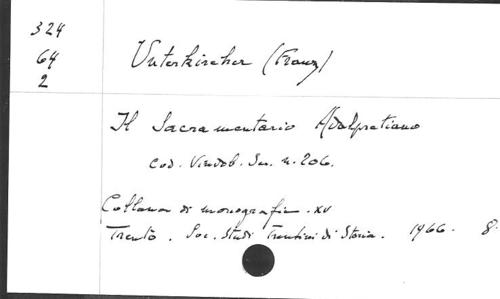 324
64
2
Unterkircher (Franz)
Il Sacramentario Adalpretiano
Cod. Vindob. Ser. n. 206.
Collana di monografie. XV
Trento. Soc. Studi Trentini di Storia. 1966. 8.